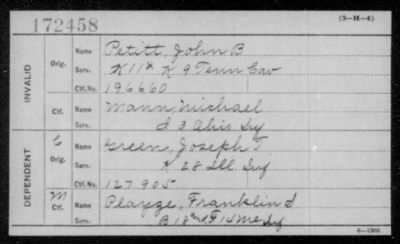 172458
(3-H-4)
INVALID
Orig.
Name Petitt, John B
Serv. K 11 & K 9 Tenn Cav
Ctf. No. 196660
Ctf.
Name Mann, Michael
Serv. d 3 Ohio
DEPENDENT
C
Orig.
Name Green, Joseph T
Serv. K 28 Ill Inf
Ctf. No. 127905
M
Ctf.
Name Playze, Franklin d
Serv. B 18 F 14 Me Inf
6—1303